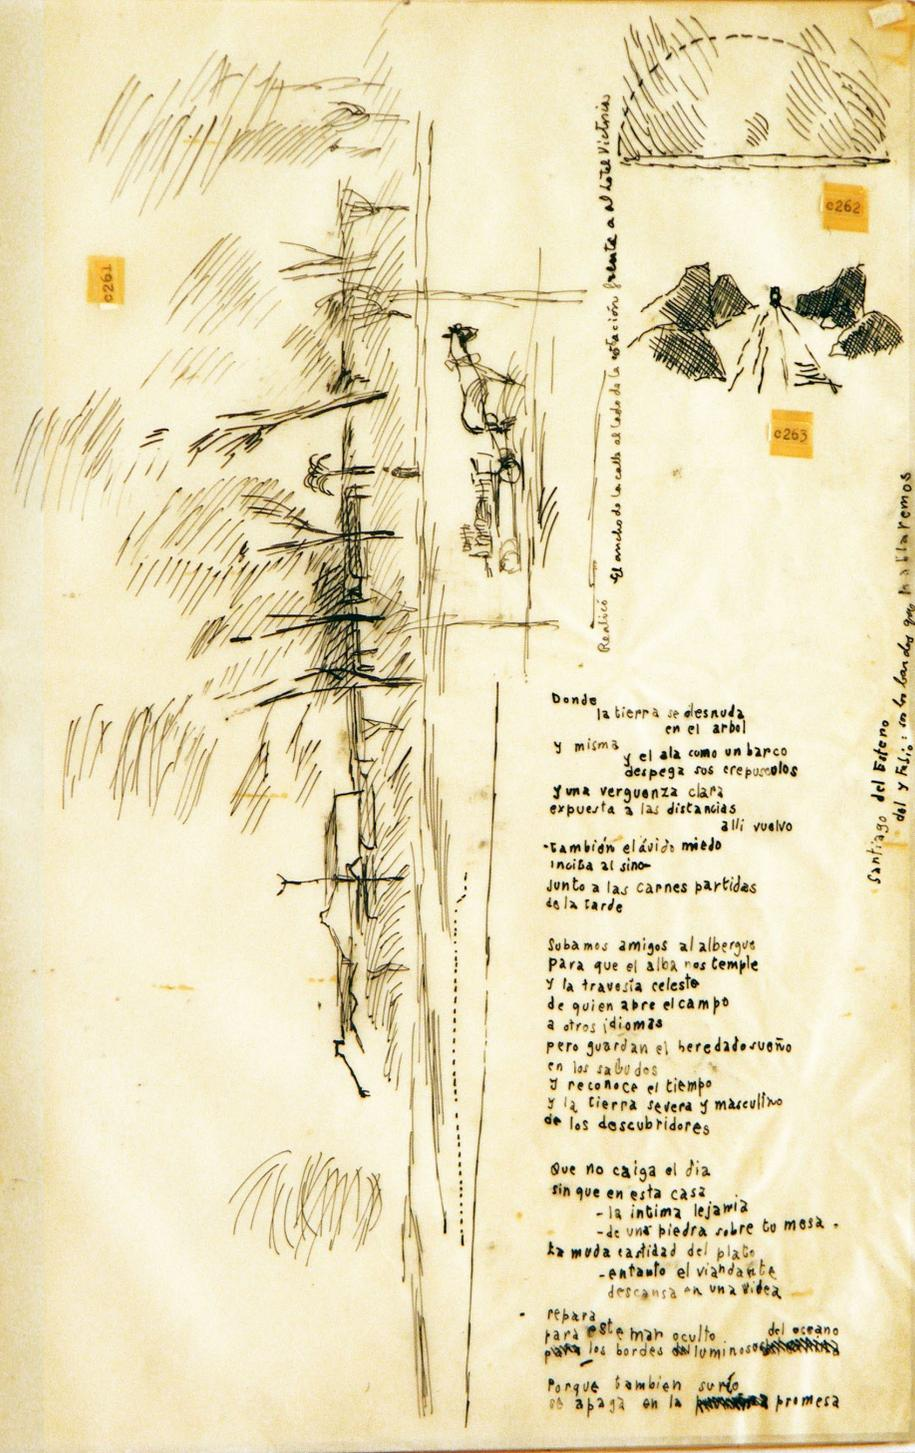 c261
c262
c263
Realicó El ancho de la calle al lado de la estación frente a al hotel Victoria
Santiago del Estero
del y Felio: en lo bardos que hallaremos
Donde
la tierra se desnuda
en el arbol
y misma
y el ala como un barco
despega sos crepusculos
y una verguenza clara
expuesta a las distancias
alli vuelvo
también el ávido miedo
inciba al sino
junto a las carnes partidas
de la tarde
Subamos amigos al albergue
para que el alba nos temple
y la travesía celeste
de quien abre el campo
a otros idiomas
pero guardan el heredado sueño
en los saludos
y reconoce el tiempo
y la tierra severa y masculino
de los descubridores
Que no caiga el dia
sin que en esta casa
- la intima lejania
- de una piedra sobre tu mesa.
La muda castidad del plato
- entanto el viandante
descansa en una videa
repara
para este mar oculto del oceano
para los bordes del luminoso
Porque tambien su río
se apaga en la promesa